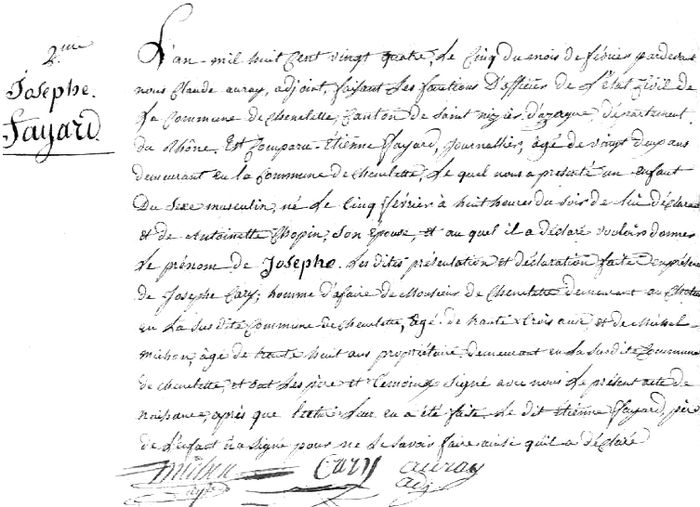 2.me
Josephe.
Fayard
L'an mil huit Cent vingt quatre, le Cinq du mois de février pardevant
nous Claude auray, adjoint, faisant les fonctions D'officier de L'Etat Civil de
La Commune de Chenelette, Canton de Saint nizier d'azergue, département
du Rhône, Est Comparu Etienne Fayard, Journallier, âgé de vingt deux ans
demeurant en la Commune de chenelette, Le quel nous a présenté un enfant
Du Sexe masculin, né Le Cinq février à huit heures du Soir de lui déclarant
et de Antoinette Chopin, Son épouse, et au quel il a déclaré vouloir donner
Le prénom de Josephe. Les dites présentation et déclaration faite en présence
de Josephe Cary, homme d'afaire de Monsieur de Chenelette demeurant au Château
en La Sus dite Commune de Chenelette, âgé de trante trois ans et de Michel
michon, âgé de trante huit ans propriétaire, demeurant en La Susdite Commune
de chenelette, et ont Les père et témoins Signé avec nous Le présent acte de
naissance, après que lecture Leur en a été faite. Le dit étienne Fayard, père
de L'enfant n'a Signé pour ne Le Savoir faire ainsi qu'il a déclaré
michon Cary auray
adj